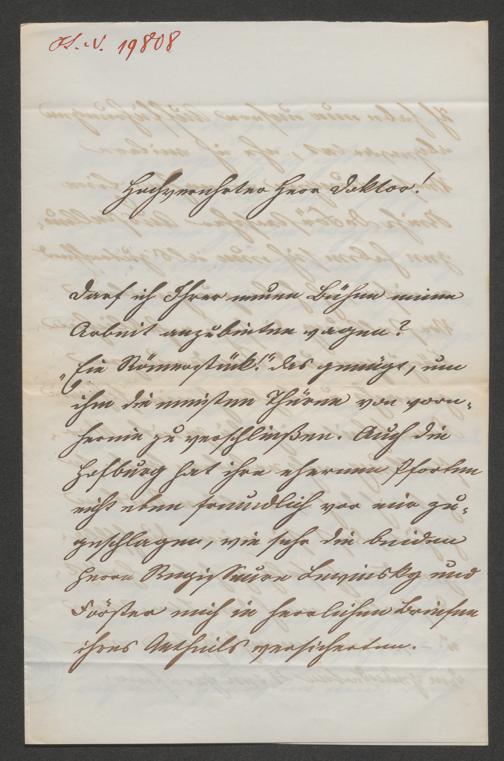 H. N. 19808
Hochverehrter Herr Doktor!
Darf ich Ihrer neuen Bühne meine
Arbeit anzubieten wagen?
„Ein Römerstück!" das genügt, um
ihm die meisten Thüren von vorn-
herein zu verschließen. Auch die
Hofburg hat ihre ehernen Pforten
nicht eben freundlich vor mir zu-
geschlagen, wie sehr die beiden
Herrn Regisseure Lewinsky und
Förster mich in herrlichen Briefen
ihres Antheils versicherten.